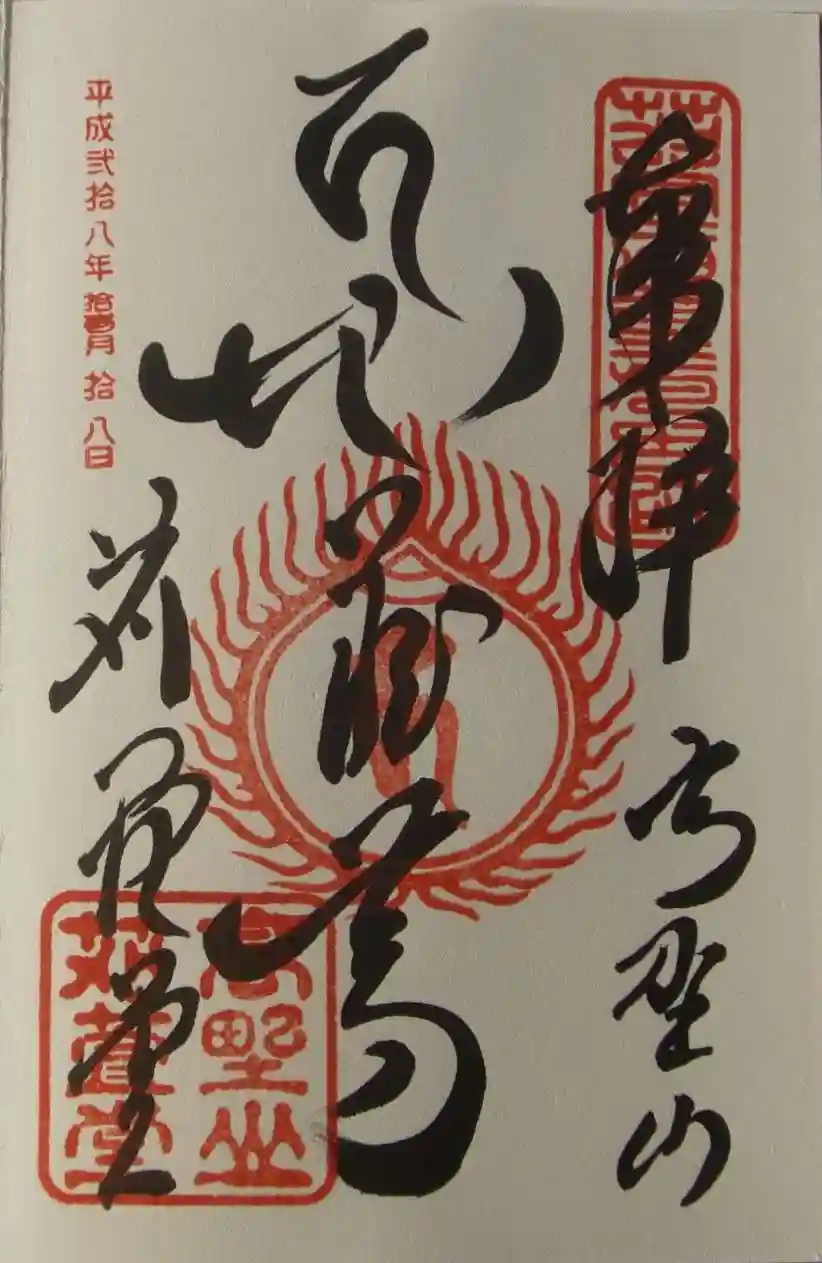 奉拝 高野山
地蔵尊
苅萱堂
平成弐拾八年拾壹月拾八日
高野山
苅萱堂